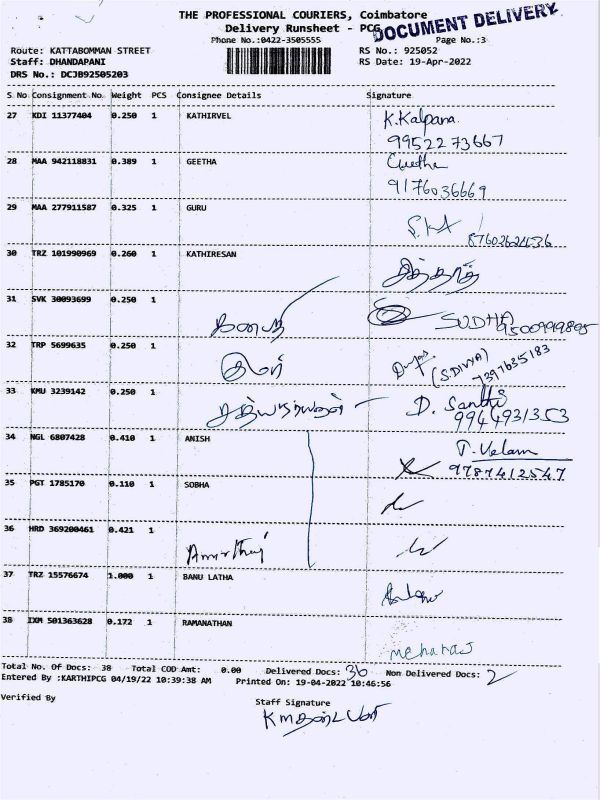 THE PROFESSIONAL COURIERS, Coimbatore
Delivery Runsheet - PCG
DOCUMENT DELIVERY
Phone No.:0422-3505555
Page No.:3
Route: KATTABOMMAN STREET
RS No.: 925052
Staff: DHANDAPANI
RS Date: 19-Apr-2022
DRS No.: DCJB92505203
S No Consignment No. Weight PCS Consignee Details Signature
27 KDI 11377404 0.250 1 KATHIRVEL K.Kalpana.
9952273667
28 MAA 942118831 0.389 1 GEETHA Geetha
9176036669
29 MAA 277911587 0.325 1 GURU
30 TRZ 101990969 0.260 1 KATHIRESAN
31 SVK 30093699 0.250 1 SUDHA
9500999895
32 TRP 5699635 0.250 1 (S.DIVYA)
7397635183
33 KMU 3239142 0.250 1 D. Santhi
9944931353
34 NGL 6807428 0.410 1 ANISH T. Velam
9787412547
35 PGT 1785170 0.110 1 SOBHA
36 HRD 369200461 0.421 1
37 TRZ 15576674 1.000 1 BANU LATHA
38 IXM 501363628 0.172 1 RAMANATHAN
Total No. Of Docs: 38 Total COD Amt: 0.00 Delivered Docs: 36 Non Delivered Docs: 2
Entered By :KARTHIPCG 04/19/22 10:39:38 AM Printed On: 19-04-2022 10:46:56
Verified By
Staff Signature